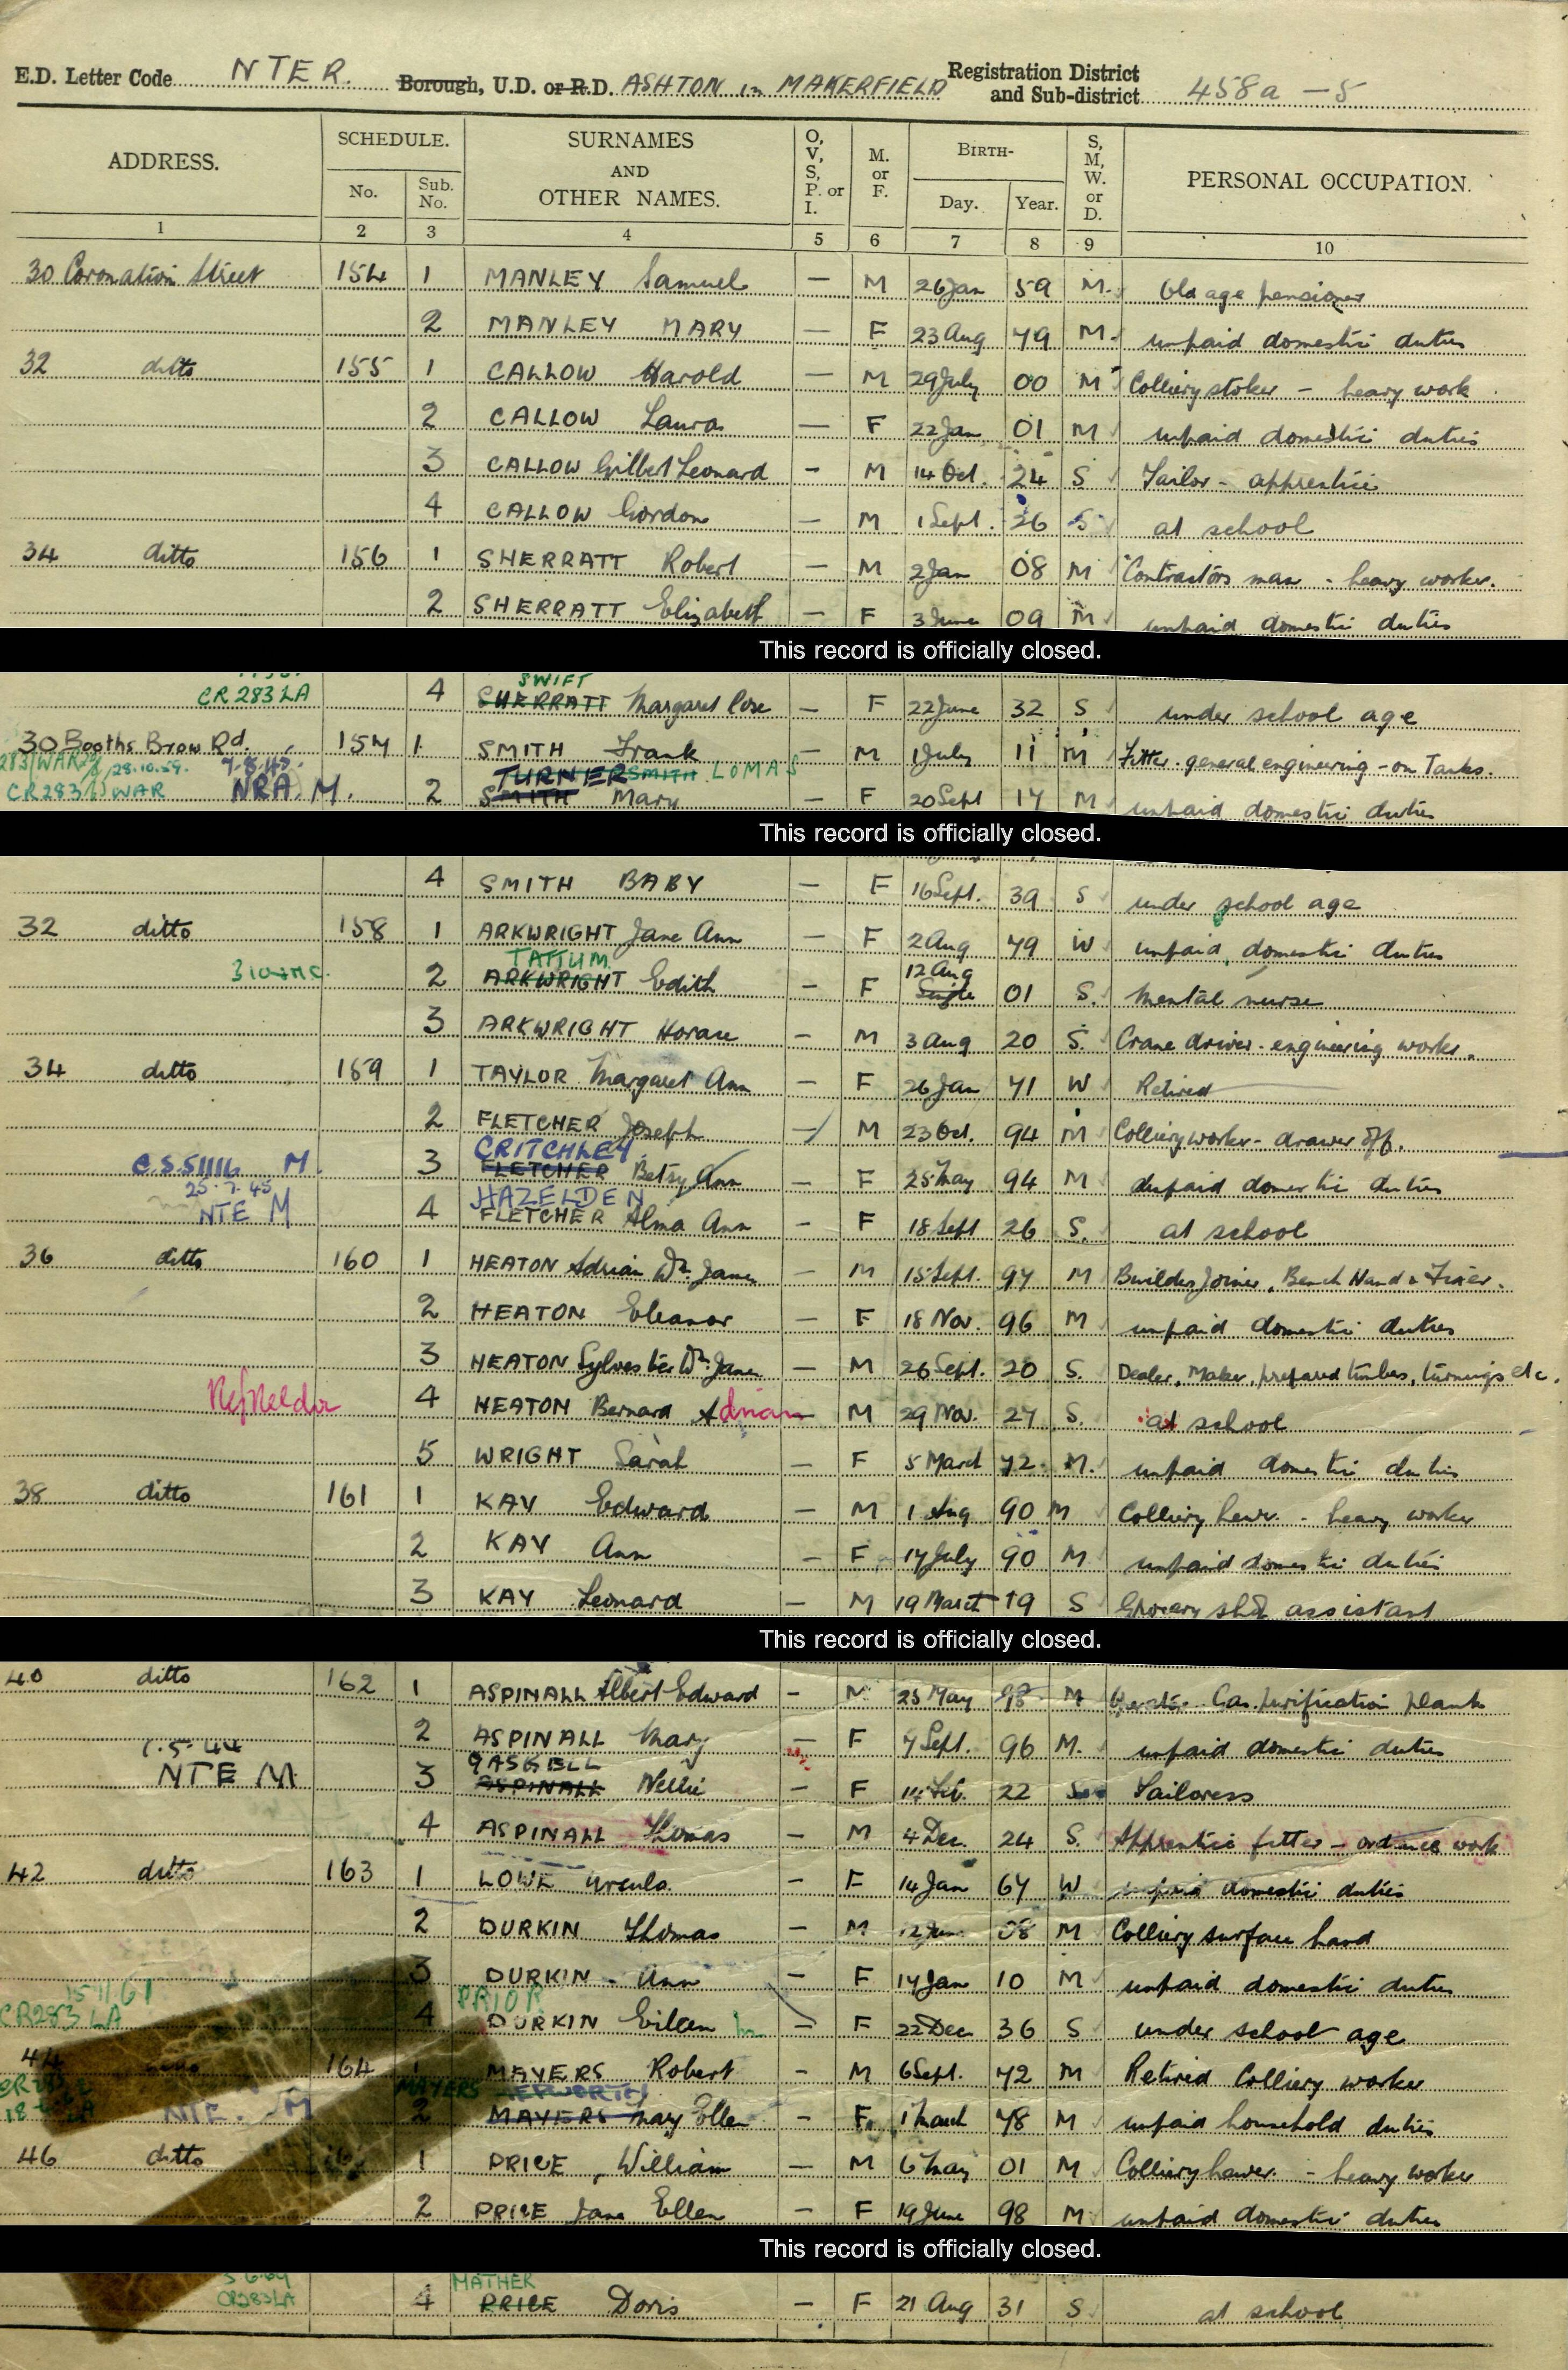 E.D. Letter Code NTER. Borough, U.D. or R.D. ASHTON in MAKERFIELD Registration District and Sub-district 458a - 5
ADDRESS. SCHEDULE. No. Sub. No. SURNAMES AND OTHER NAMES. O, V, S, P. or I. M. or F. BIRTH- Day. Year. S, M, W. or D. PERSONAL OCCUPATION.
1 2 3 4 5 6 7 8 9 10
30 Coronation Street 154 1 MANLEY Samuel — M 26 Jan 59 M. Old age pensioner
2 MANLEY MARY — F 23 Aug 79 M. unpaid domestic duties
32 ditto 155 1 CALLOW Harold — M 29 July 00 M Colliery stoker - heavy work
2 CALLOW Laura — F 22 Jan 01 M unpaid domestic duties
3 CALLOW Gilbert Leonard - M 14 Oct. 24 S Tailor - apprentice
4 CALLOW Gordon - M 1 Sept. 26 S at school
34 ditto 156 1 SHERRATT Robert — M 2 Jan 08 M Contractors man - heavy worker.
2 SHERRATT Elizabeth — F 3 June 09 M unpaid domestic duties
This record is officially closed.
SWIFT
CR 283 LA 4 SHERRATT Margaret Rose — F 22 June 32 S under school age
30 Booths Brow Rd. 157 1 SMITH Frank — M 1 July 11 M Fitter general engineering - on Tanks.
28.10.59. 7.8.45. TURNER SMITH LOMAS
CR283 WAR NRA M. 2 SMITH Mary — F 20 Sept 17 M unpaid domestic duties
This record is officially closed.
4 SMITH BABY — F 16 Sept. 39 S under school age
32 ditto 158 1 ARKWRIGHT Jane Ann — F 2 Aug 79 W unpaid domestic duties
TATTUM 12 Aug
2 ARKWRIGHT Edith - F 01 S. Mental nurse
3 ARKWRIGHT Horace — M 3 Aug 20 S. Crane driver - engineering works.
34 ditto 159 1 TAYLOR Margaret Ann — F 26 Jan 71 W Retired
2 FLETCHER Joseph — M 23 Oct. 94 M Colliery worker - drawer off.
CRITCHLEY
C.S.51116 M. 3 FLETCHER Betsy Ann — F 25 May 94 M unpaid domestic duties
25.7.45 HAZELDEN
NTE M 4 FLETCHER Alma Ann - F 18 Sept 26 S. at school
36 ditto 160 1 HEATON Adrian Wm. James — M 15 Sept. 97 M Builders Joiner, Bench Hand & Fixer.
2 HEATON Eleanor — F 18 Nov. 96 M unpaid domestic duties
3 HEATON Sylvester Wm. James — M 26 Sept. 20 S. Dealer, Maker, prepared timber, turnings etc.
4 HEATON Bernard Adrian M 29 Nov. 27 S. at school
5 WRIGHT Sarah — F 5 March 72 M. unpaid domestic duties
38 ditto 161 1 KAY Edward — M 1 Aug 90 M Colliery hewer - heavy worker
2 KAY Ann — F 17 July 90 M unpaid domestic duties
3 KAY Leonard — M 19 March 19 S Grocery shop assistant
This record is officially closed.
40 ditto 162 1 ASPINALL Albert Edward — M 23 May M Gas purification plant
2 ASPINALL Mary — F 7 Sept. 96 M. unpaid domestic duties
1.5.44 GASKELL
NTE M 3 ASPINALL Nellie — F 14 Feb. 22 S Tailoress
4 ASPINALL Thomas — M 4 Dec. 24 S. Apprentice fitter - ordnance work
42 ditto 163 1 LOWE Ursula — F 14 Jan 67 W unpaid domestic duties
2 DURKIN Thomas — M 12 08 M Colliery surface hand
3 DURKIN Ann — F 17 Jan 10 M unpaid domestic duties
15 11 61 PRIOR
CR283 LA 4 DURKIN Eileen — F 22 Dec 36 S under school age
44 164 MAYERS Robert - M 6 Sept. 72 M Retired Colliery worker
MAYERS
NTE. M 2 MAYERS Mary Ellen - F 1 March 78 M unpaid household duties
46 ditto 1 PRICE William — M 6 May 01 M Colliery hewer - heavy worker
2 PRICE Jane Ellen — F 19 June 98 M unpaid domestic duties
This record is officially closed.
MATHER
CR283LA 4 PRICE Doris — F 21 Aug 31 S at school